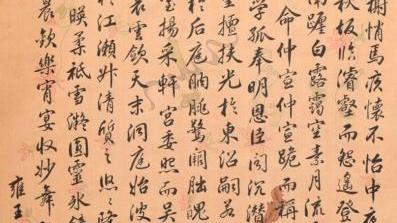 榭悄焉疚懷不怡中
秋坂臨濬壑而怨遙登
南躔白露靄空素月流
命仲宣仲宣跪而稱
學孤奉明恩臣聞沉潛
擅扶光於東沼嗣若
於后庭朒朓驚闕朏魄
室揚采軒宮委照而吳
表雲斂天末洞庭始波
於江瀨升清質之悠悠降
暎柔祇雪凝圓靈水鏡
晨歡樂宵宴收妙舞
雍王